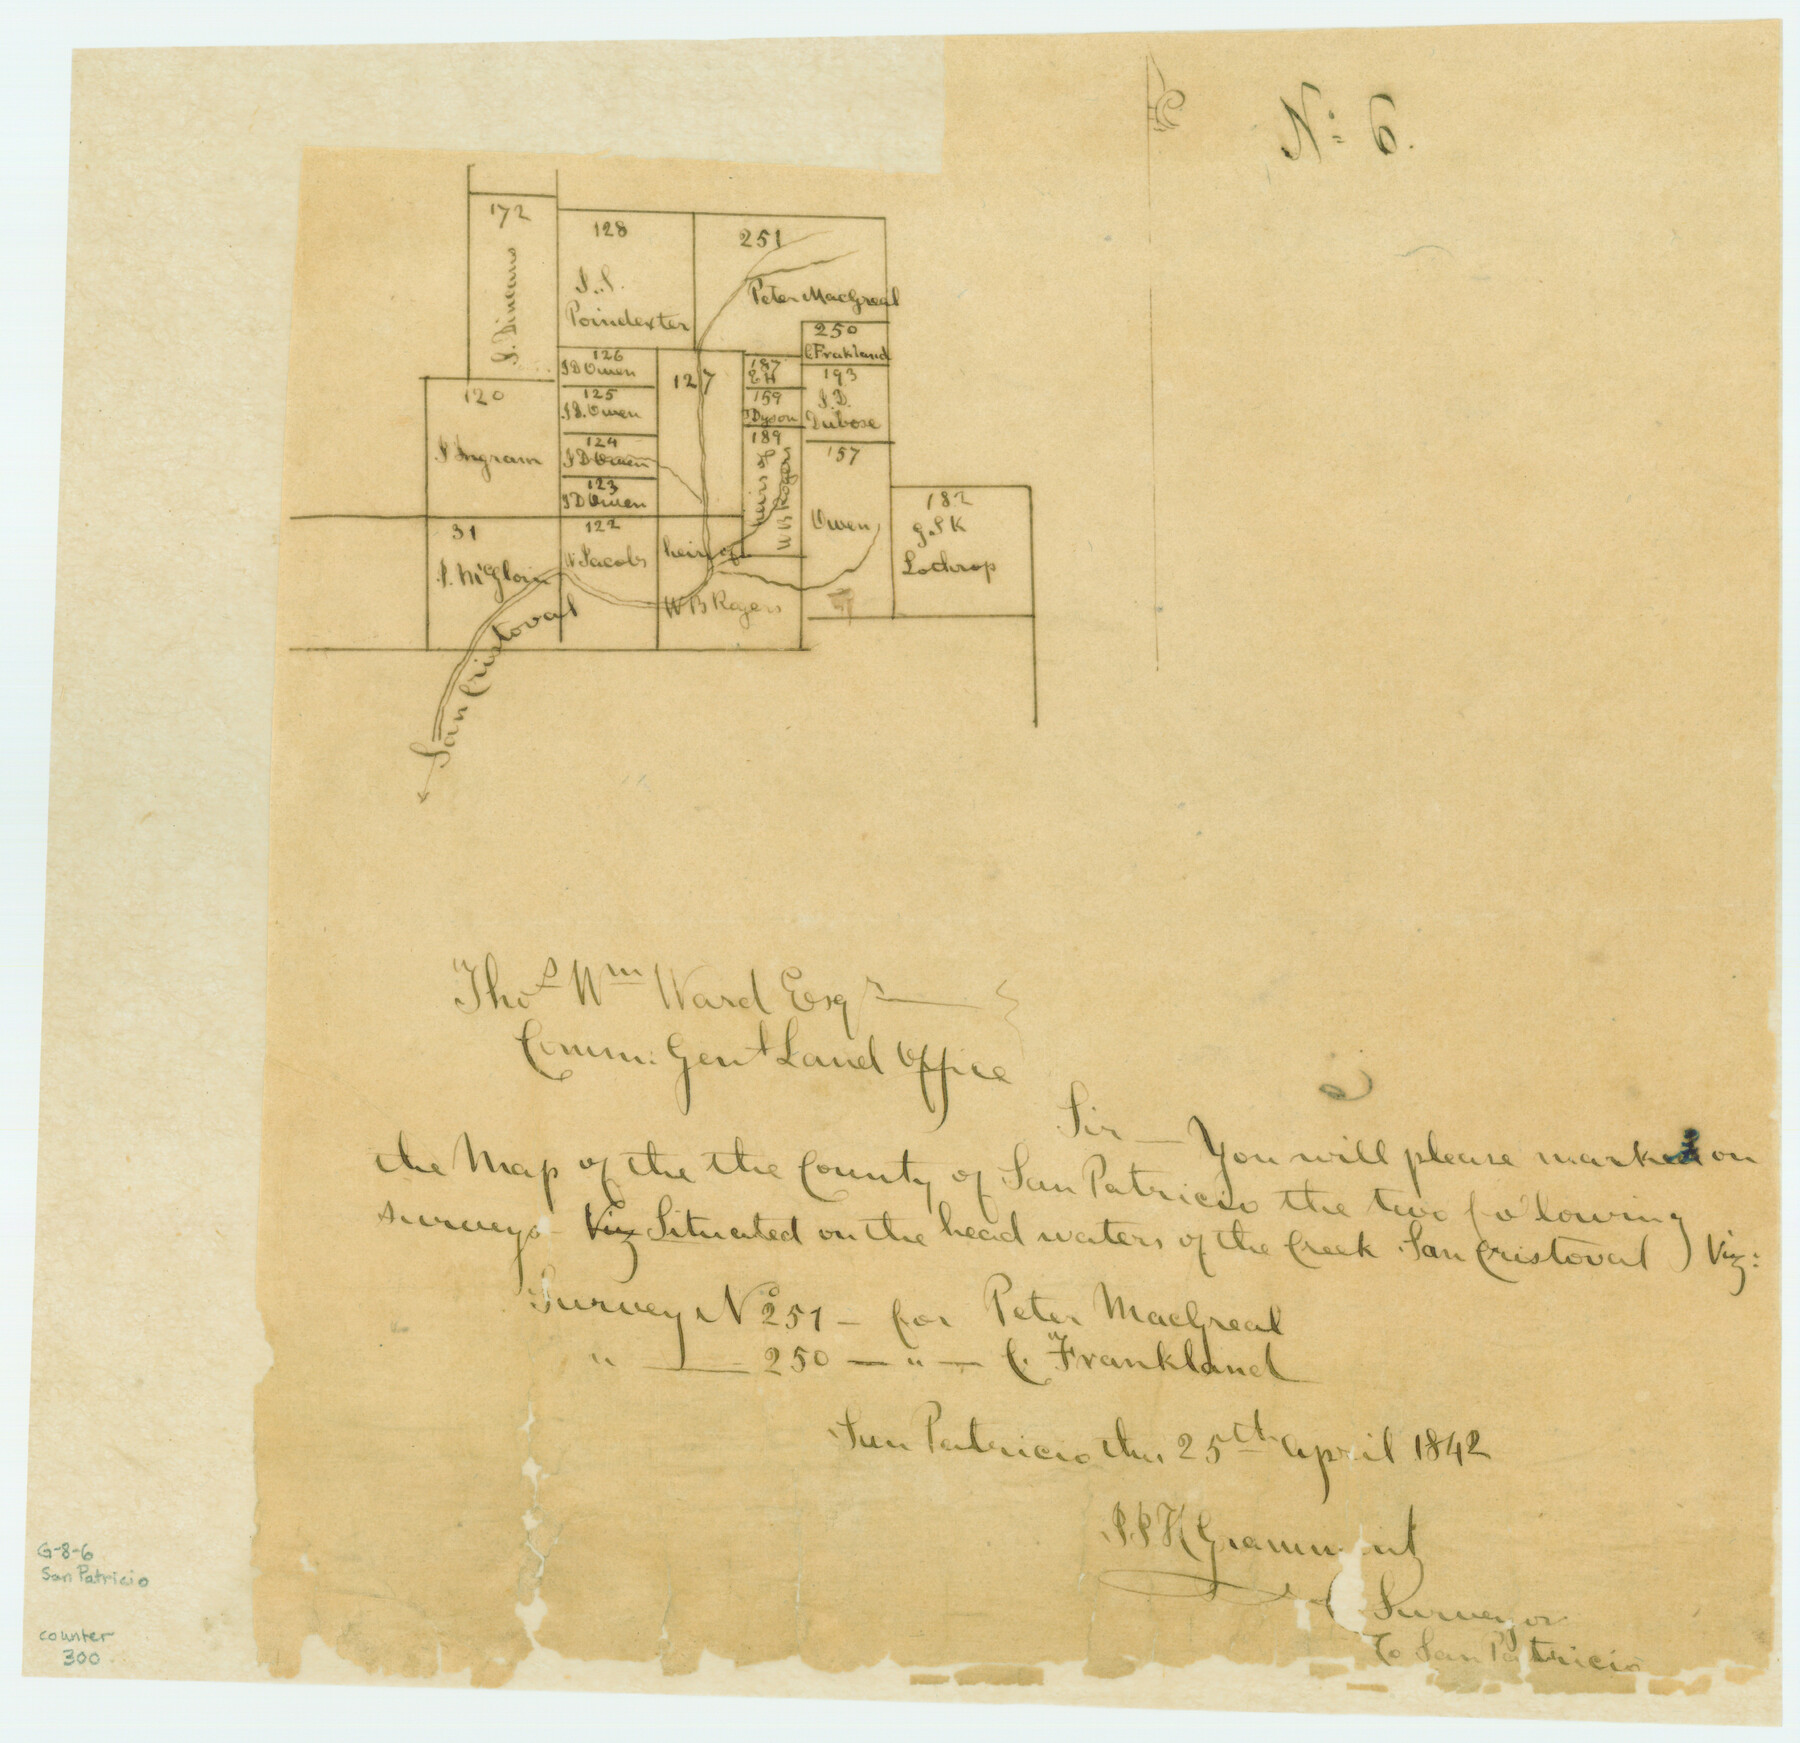 Nº 6.
172
128
251
J. S.
Poindexter
Peter MacGreal
250
C Frakland
126
J D Owen
127
187
E H
193
J. D.
Dubose
120
125
J. D. Owen
159
J Dyson
189
heirs of
W B Rogers
J Ingram
124
J D Owen
157
123
J D Owen
182
G. S K
Lothrop
31
122
Owen
J. McGloin
N Jacobs
heirs of
W B Rogers
San Cristoval
Thos Wm Ward Esqr
Comm: Genl Land Office
Sir — You will please mark on
the Map of the the County of San Patricio the two following
surveys – Viz Situated on the head waters of the Creek San Cristoval Viz:
Survey Nº 251 – for Peter MacGreal
" — 250 — " — C. Frankland
San Patricio the 25th April 1842
Surveyor
Co San Patricio
G-8-6
San Patricio
counter
300